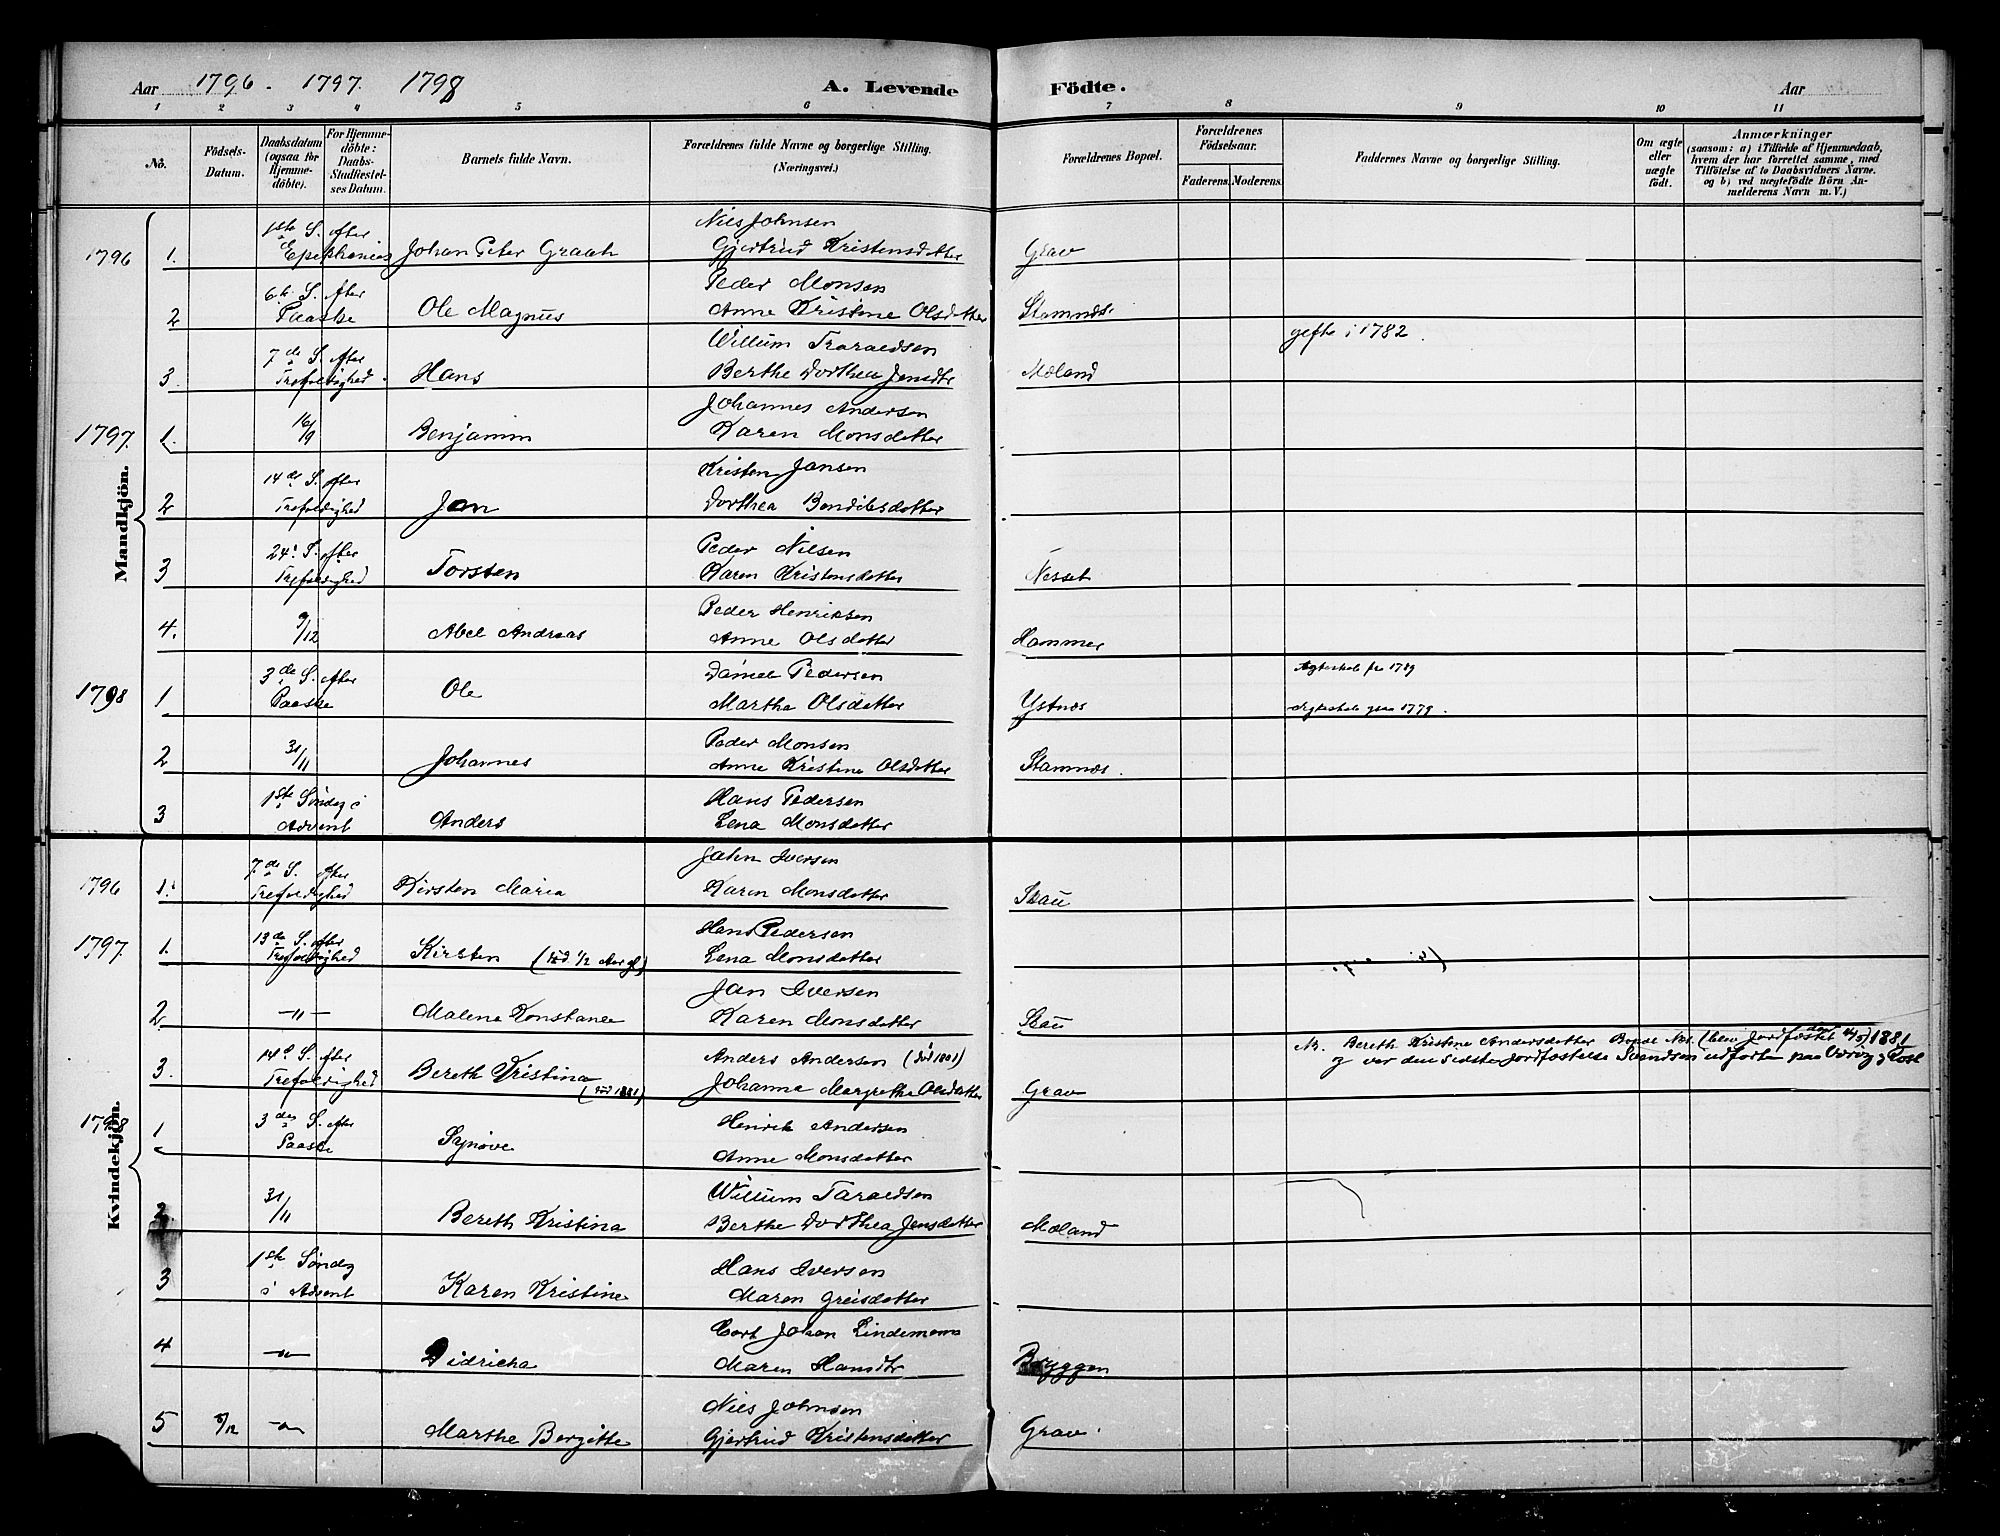 Aar 1796. 1797. 1798 A. Levende Födte. Aar
1 2 3 4 5 6 7 8 9 10 11
No. Födsels-Datum. Daabsdatum (ogsaa for Hjemme-döbte). For Hjemme-döbte: Daabs-Stadfæstel-ses Datum. Barnets fulde Navn. Forældrenes fulde Navne og borgerlige Stilling. (Næringsvei.) Forældrenes Bopæl. Forældrenes Födselsaar. Faderens. Moderens. Faddernes Navne og borgerlige Stilling. Om ægte eller uægte födt. Anmærkninger (saasom: a) i Tilfælde af Hjemmedaab, hvem der har forrettet samme, med Tilföielse af to Daabsvidners Navne. og b) ved uægtefödte Börn An-melderens Navn m. V.)
Mandkjön.
1ste S. efter Niels Johnsen
1796 1. Epiphanias Johan Peter Graah Gjertrud Kristensdatter Grav
6te S. efter Peder Monsen
2 Paaske Ole Magnus Anne Kristine Olsdatter Stamnes.
7de S. efter Willum Taraldsen gifte i 1782.
3. Trefoldighed. Hans Berthe Dorthea Jensdtr Moland
16/9 Johannes Andersen
1797. 1. Benjamin Karen Monsdatter
14de S. efter Kristen Jansen
2 Trefoldighed Jan Dorthea Bendiksdatter
24. S. efter Peder Nilsen
3 Trefoldighed Torsten Karen Kristensdatter Nesset
9/12 Peder Henriksen
4. Abel Andreas Anne Olsdatter Hammer
3de S. efter Daniel Pedersen Ægteskab fra 1789
1798 1 Paaske Ole Martha Olsdatter Ystnes Ægteskab 1779.
30/11 Peder Monsen
2 Johannes Anne Kristine Olsdatter Stamnes.
1ste Søndag i Hans Pedersen
3 Advent Anders Lena Monsdatter
Kvindekjön.
7de S. efter John Iversen
1796 1. Trefoldighed Kirsten Maria Karen Monsdatter Skau
13de S. efter Hans Pedersen
1797. 1. Trefoldighed Kirsten (død 1/2 Aar gl) Lena Monsdatter
Jan Iversen
2 —„— Malene Konstance Karen Monsdatter Skau
14de S. efter Anders Andersen (død 1801) Nb. Bereth Kristine Andersdatter Nes. (blev Jordfæstet den 1881
3. Trefoldighed Bereth Kristina (død 1881) Johanna Margrethe Olsdatter Grav og var den sidste Jordfæstelse Svendsen udførte paa
3de S. efter Henrik Andersen
1798 1 Paaske Synøve Anne Monsdatter
30/11 Willum Taraldsen
2. Bereth Kristina Berthe Dorthea Jensdatter Moland
1ste Søndag Hans Iversen
3 i Advent Karen Kristine Maren Greisdatter
Cort Johan Lindemann
4 —„— Didricha Maren Hansdtr Bryggen
Niels Johnsen
5 8/12 —„— Marthe Bergitte Gjertrud Kristensdatter Grav.